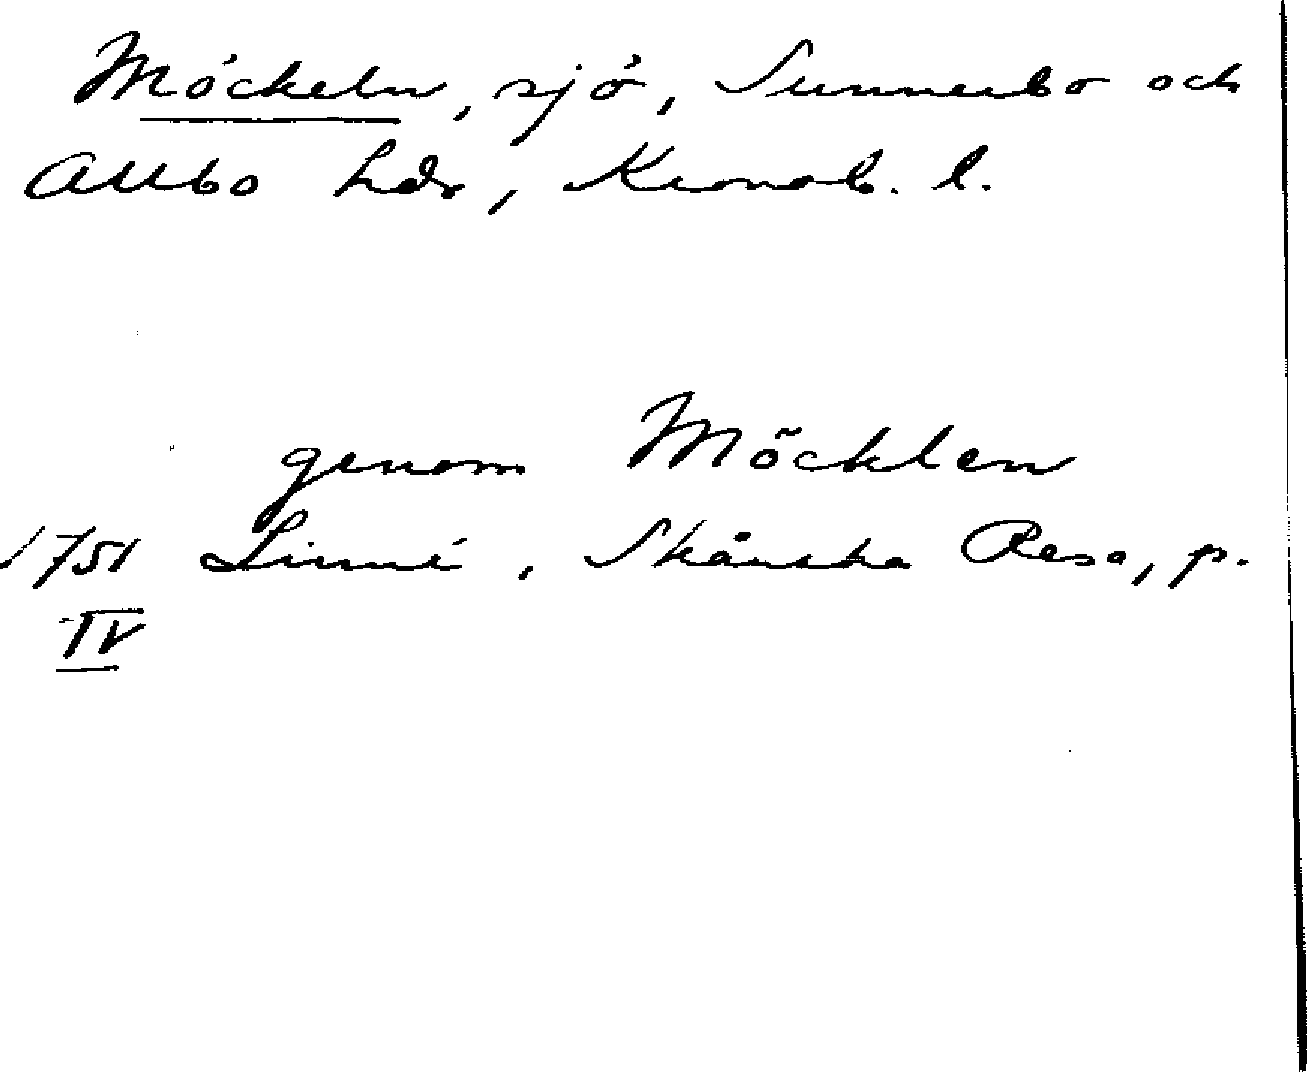 Möckeln, sjö, Sunnerbo och
Allbo hdr, Kronob. l.
genom Möcklen
1751 Linné, Skånska Resa, p.
IV